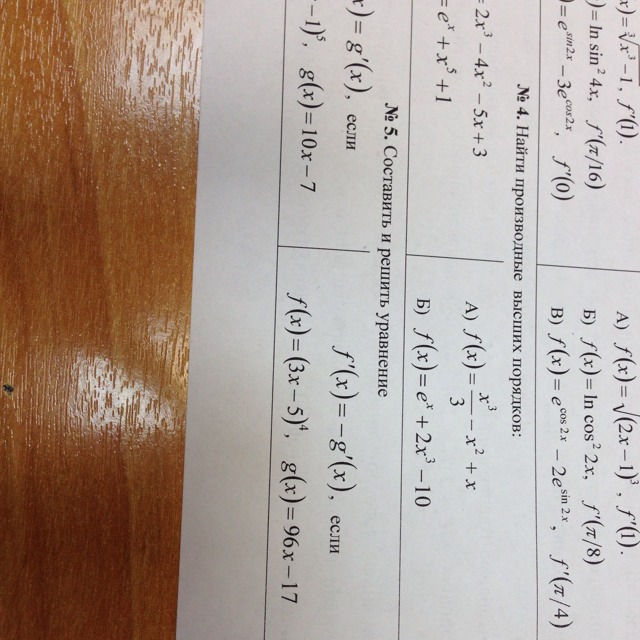 x) = ∛x³ − 1, f'(1).
) = ln sin² 4x, f'(π/16)
) = e^{sin 2x} − 3e^{cos 2x}, f'(0)
А) f(x) = √(2x − 1)³, f'(1).
Б) f(x) = ln cos² 2x, f'(π/8)
В) f(x) = e^{cos 2x} − 2e^{sin 2x}, f'(π/4)
№ 4. Найти производные высших порядков:
= 2x³ − 4x² − 5x + 3
= eˣ + x⁵ + 1
А) f(x) = x³/3 − x² + x
Б) f(x) = eˣ + 2x³ − 10
№ 5. Составить и решить уравнение
x) = g'(x), если
− 1)⁵, g(x) = 10x − 7
f'(x) = −g'(x), если
f(x) = (3x − 5)⁴, g(x) = 96x − 17